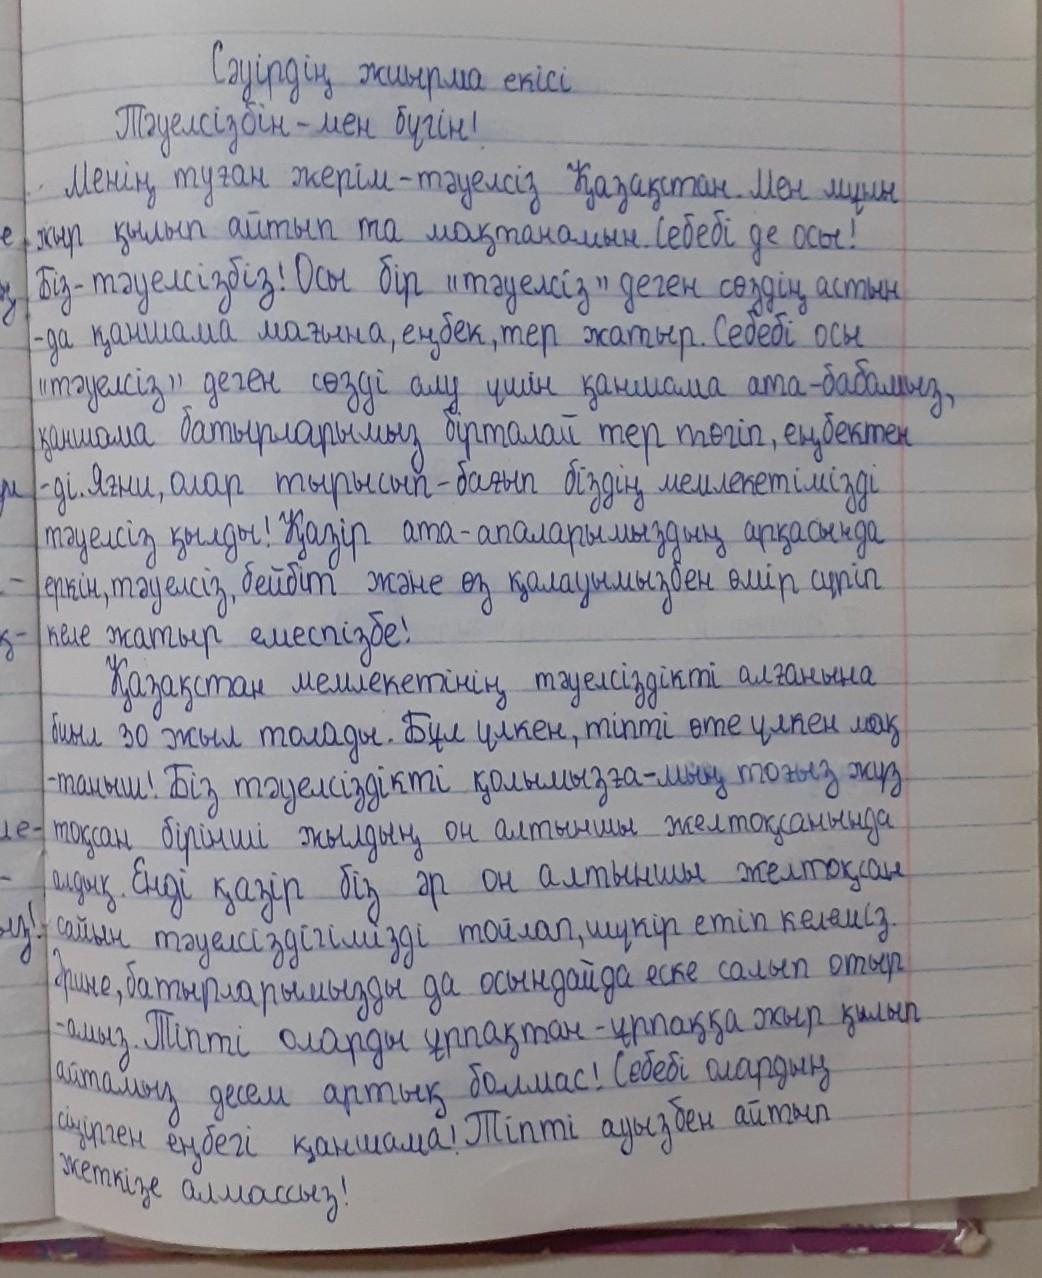 Сәуірдің жиырма екісі
Тәуелсізбін-мен бүгін!
Менің туған жерім-тәуелсіз Қазақстан. Мен мұнн
жыр қылып айтып та мақтанамын. Себебі де осы!
Біз-тәуелсізбіз! Осы бір "тәуелсіз" деген сөздің астын
-да қаншама мағына, еңбек, тер жатыр. Себебі осы
"тәуелсіз" деген сөзді алу үшін қаншама ата-бабамыз,
қаншама батырларымыз бірталай тер төгіп, еңбектен
-ді. Яғни, олар тырысып-бағып біздің мемлекетімізді
тәуелсіз қылды! Қазір ата-апаларымыздың арқасында
еркін, тәуелсіз, бейбіт және өз қалауымызбен өмір сүріп
келе жатыр емеспізбе!
Қазақстан мемлекетінің тәуелсіздікті алғанына
биыл 30 жыл толады. Бұл үлкен, тіпті өте үлкен мақ
-таныш! Біз тәуелсіздікті қолымызға-мың тоғыз жүз
тоқсан бірінші жылдың он алтыншы желтоқсанында
алдық. Енді қазір біз әр он алтыншы желтоқсан
сайын тәуелсіздігімізді тойлап, шүкір етіп келеміз.
Әрине, батырларымызды да осындайда еске салып отыр
-амыз. Тіпті оларды ұрпақтан-ұрпаққа жыр қылып
айтамыз десем артық болмас! Себебі олардың
сіңірген еңбегі қаншама! Тіпті ауызбен айтып
жеткізе алмассыз!